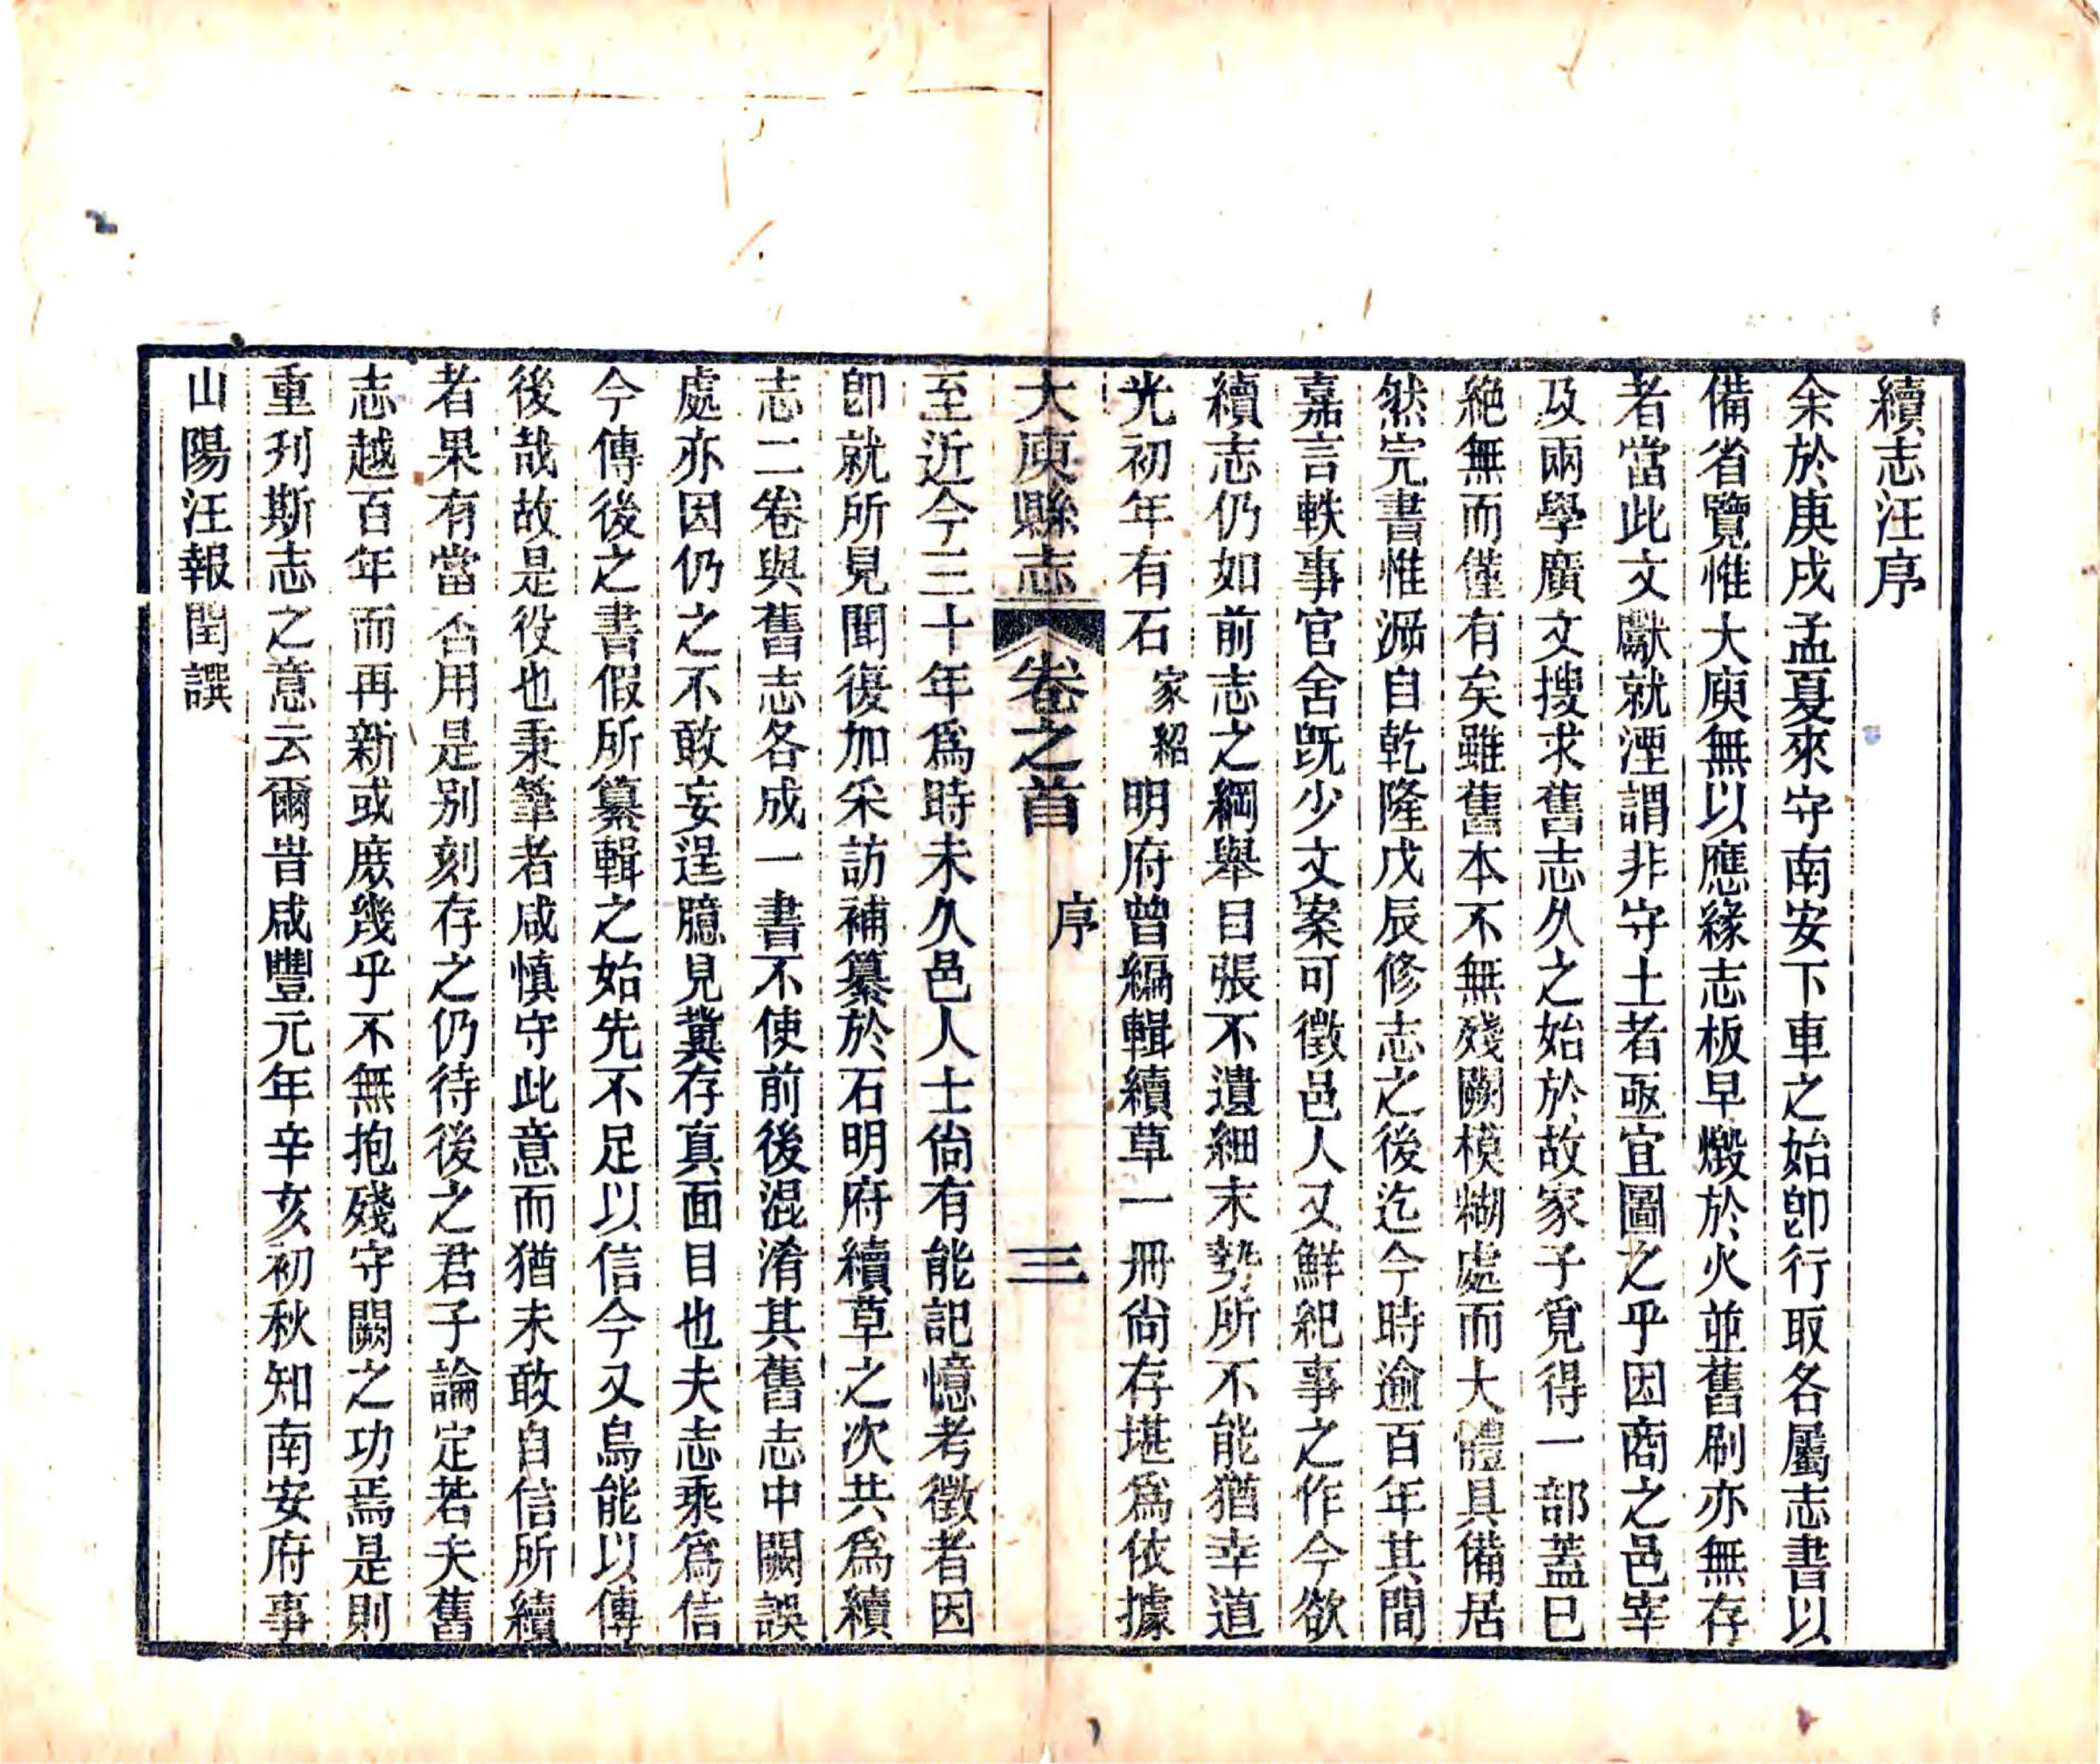 續志汪序
余於庚戌孟夏來守南安下車之始卽行取各屬志書以
備省覽惟大庾無以應緣志板早燬於火並舊刷亦無存
者當此文獻就湮謂非守土者亟宜圖之乎因商之邑宰
及兩學廣文搜求舊志久之始於故家子覓得一部蓋已
絶無而僅有矣雖舊本不無殘闕模糊處而大體具備居
然完書惟溯自乾隆戊辰修志之後迄今時逾百年其間
嘉言軼事官舍旣少文案可徵邑人又鮮紀事之作今欲
續志仍如前志之綱舉目張不遺細末勢所不能猶幸道
光初年有石家紹明府曾編輯續草一冊尙存堪爲依據
大庾縣志 卷之首 序 三
至近今三十年爲時未久邑人士尙有能記憶考徵者因
卽就所見聞復加采訪補纂於石明府續草之次共爲續
志二卷與舊志各成一書不使前後混淆其舊志中闕誤
處亦因仍之不敢妄逞臆見冀存真面目也夫志乘爲信
今傳後之書假所纂輯之始先不足以信今又烏能以傳
後哉故是役也秉筆者咸愼守此意而猶未敢自信所續
者果有當否用是别刻存之仍待後之君子論定若夫舊
志越百年而再新或庶幾乎不無抱殘守闕之功焉是則
重刋斯志之意云爾旹咸豐元年辛亥初秋知南安府事
山陽汪報閏譔